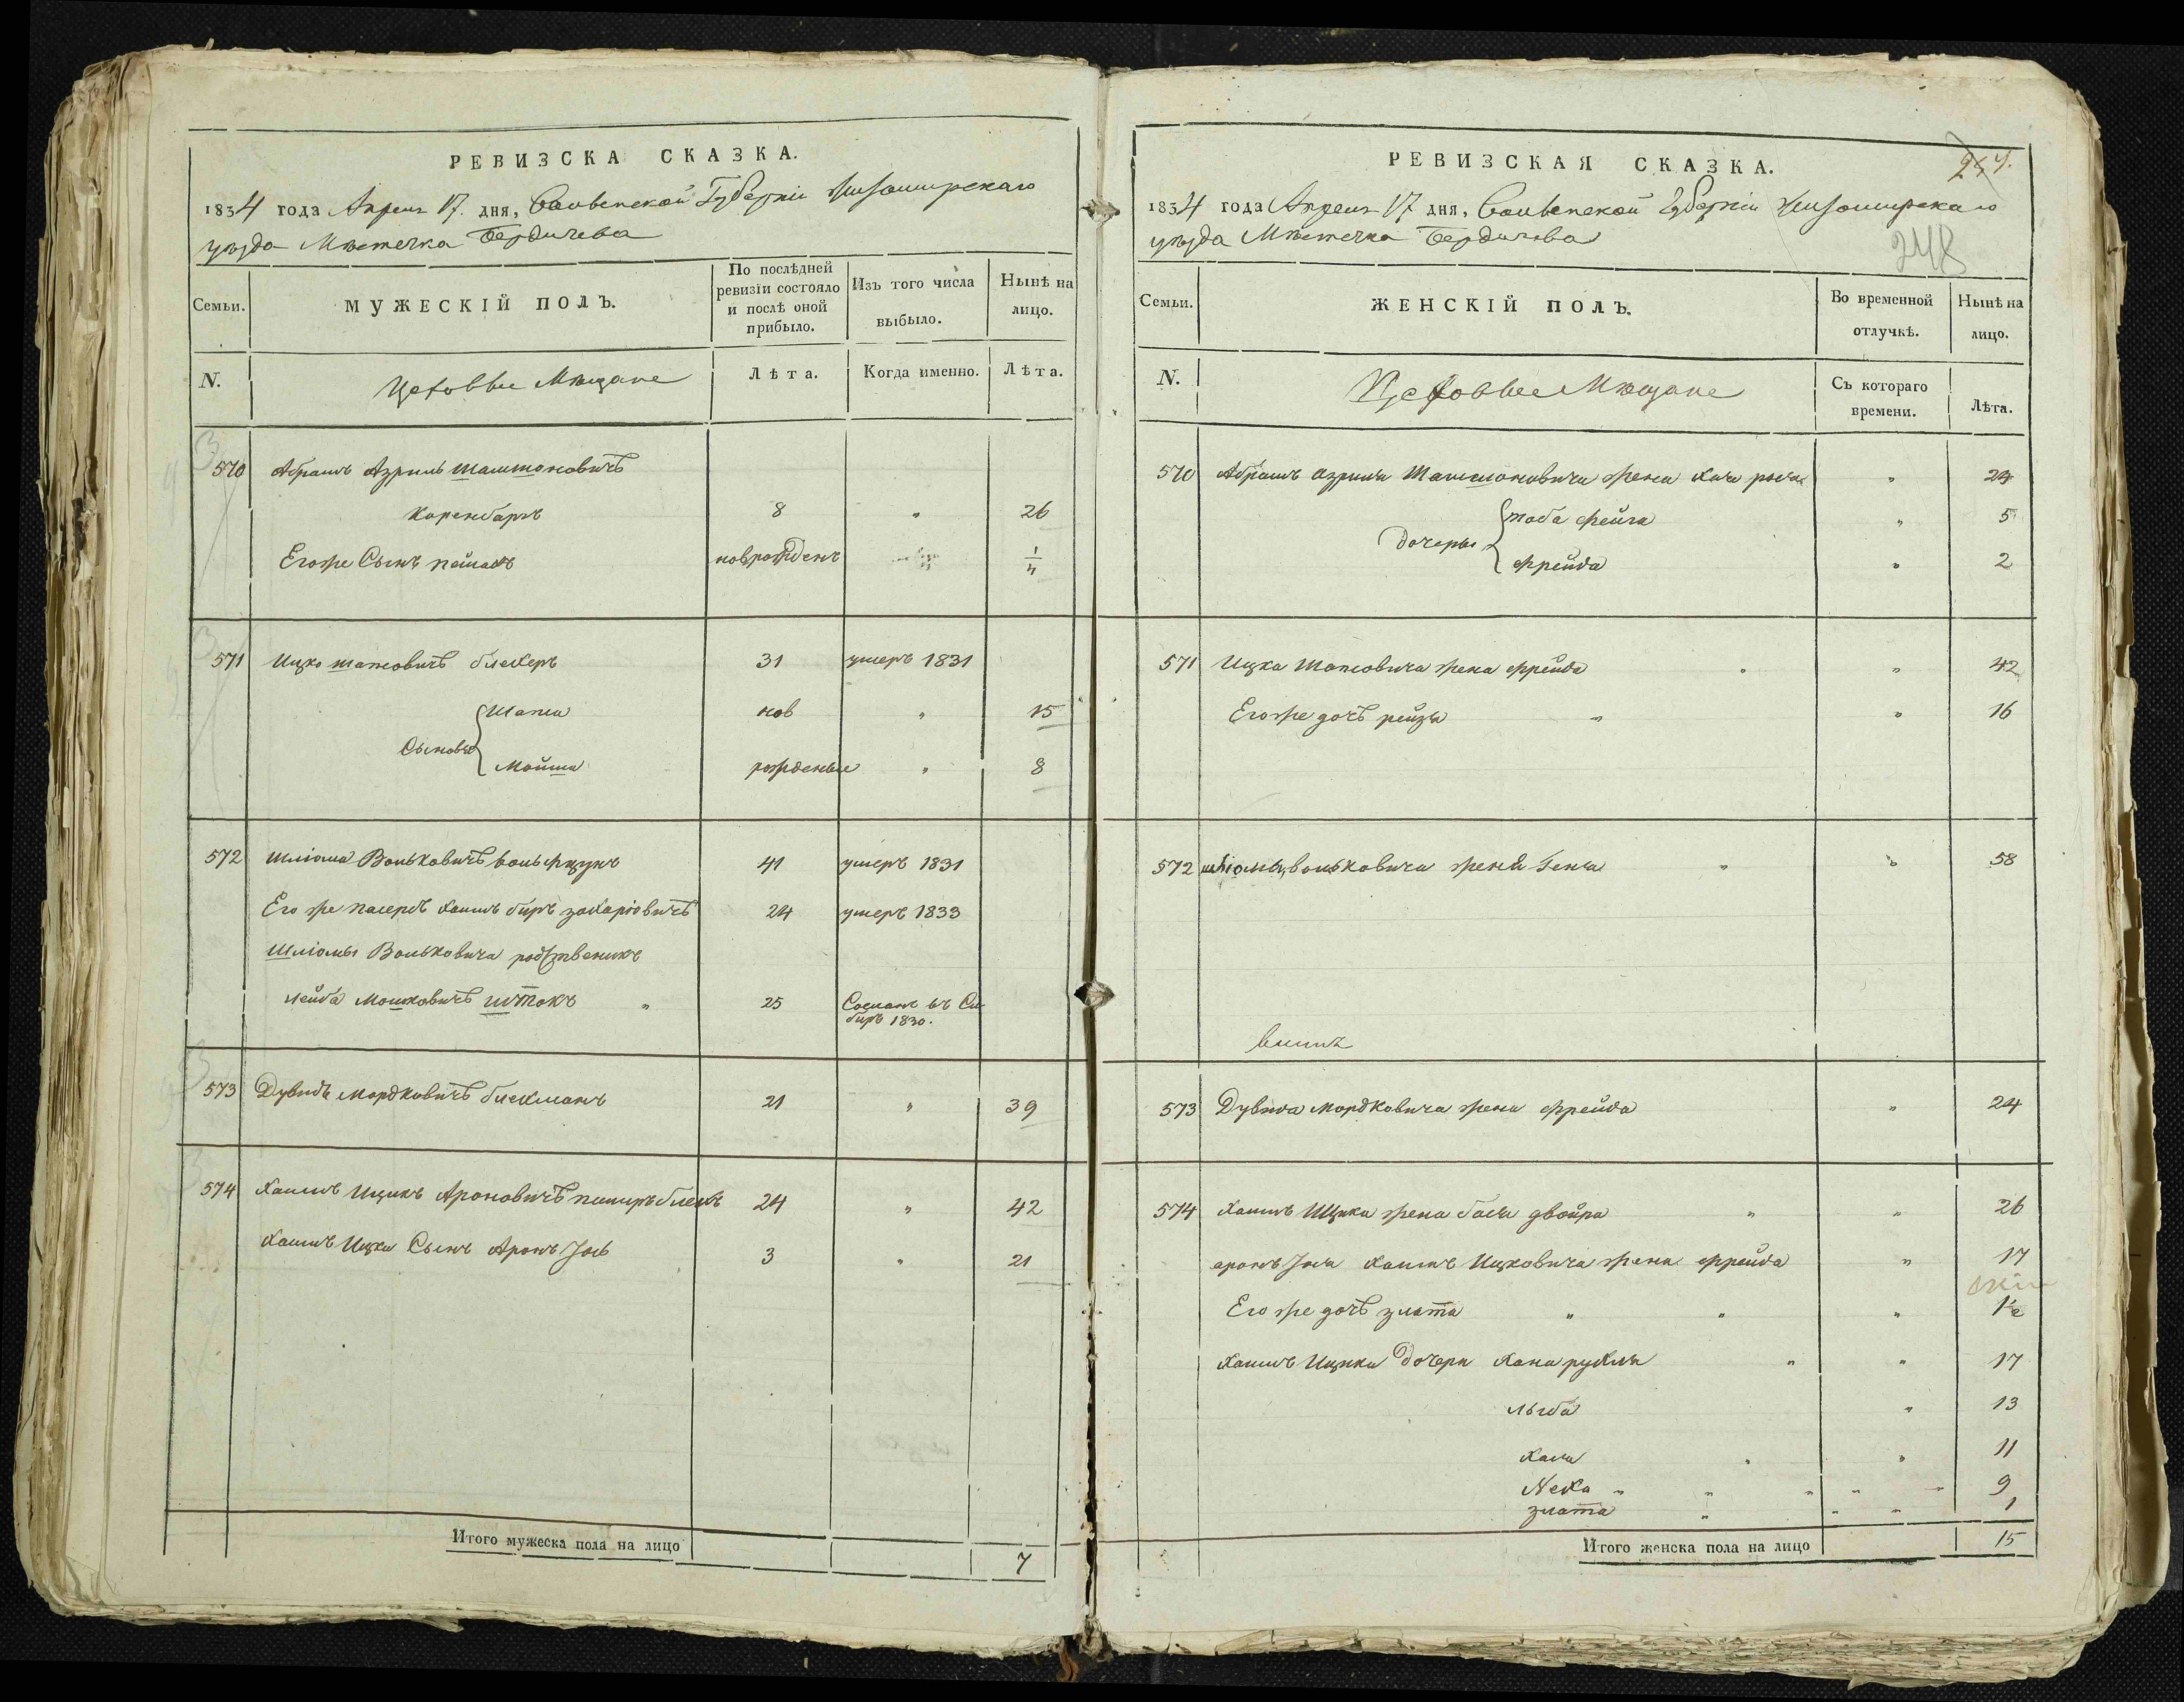 РЕВИЗСКА СКАЗКА.
1834 года Апреля 17. дня, Волынской Губерніи Житомирскаго
уѣзда Мѣстечка Бердичева
Семьи.
МУЖЕСКІЙ ПОЛЪ.
По послѣдней ревизіи состояло и послѣ оной прибыло.
Изъ того числа выбыло.
Нынѣ на лицо.
N.
Цеховые Мѣщане
Лѣта.
Когда именно.
Лѣта.
570 Абрамъ Азриль
8 " 26
Его же Сынъ новрожденъ
571 Ицко Шапсовичъ блехеръ 31 умеръ 1831
Сыновья
Шапса нов " 15
Мойша рожденые " 8
572 Шліома Вольковичъ 41 умеръ 1831
Его же пасербъ Хаимъ беръ захаріовичъ 24 умеръ 1833
Шліомы Вольковича родственикъ
лейба Мошковичъ штокъ " 25 Сосланъ въ Си-
биръ 1830.
573 Дувидъ Мордковичъ блехманъ 21 " 39
574 Хаимъ Ицикъ Ароновичъ 24 " 42
Хаимъ Ицка Сынъ Аронъ Іось 3 " 21
Итого мужеска пола на лицо 7
РЕВИЗСКАЯ СКАЗКА.
248
1834 года Апреля 17 дня, Волынской Губерніи Житомирскаго
уѣзда Мѣстечка Бердичева
Семьи.
ЖЕНСКІЙ ПОЛЪ.
Во временной отлучкѣ.
Нынѣ на лицо.
N.
Цеховые Мѣщане
Съ котораго времени.
Лѣта.
570 Абрамъ азриля жена Хая " 24
Дочеры
тоба фейга " 5
фрейда " 2
571 Ицка Шапсовича жена фрейда " " 42
Его же дочъ рейзя " " 16
572 шліомы вольковича жена Геня " " 58
573 Дувида Мордковича жена фрейда " 24
574 Хаимъ Ицика жена бася двойра " " 26
аронъ Іося Хаимъ Ицковича жена фрейда " 17
Его же дочъ злата " " " 1½
Хаимъ Ицика Дочери Хана рухля " " 17
" 13
Хая " " 11
Неха " " " " " 9
злата " " " 1
Итого женска пола на лицо 15